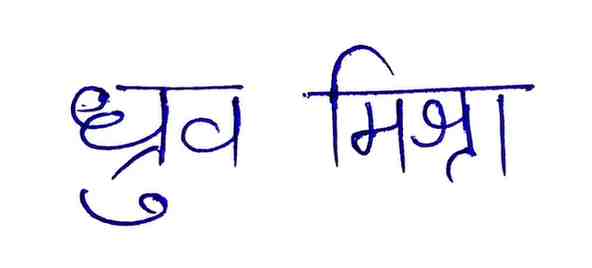 ध्रुव मिश्रा